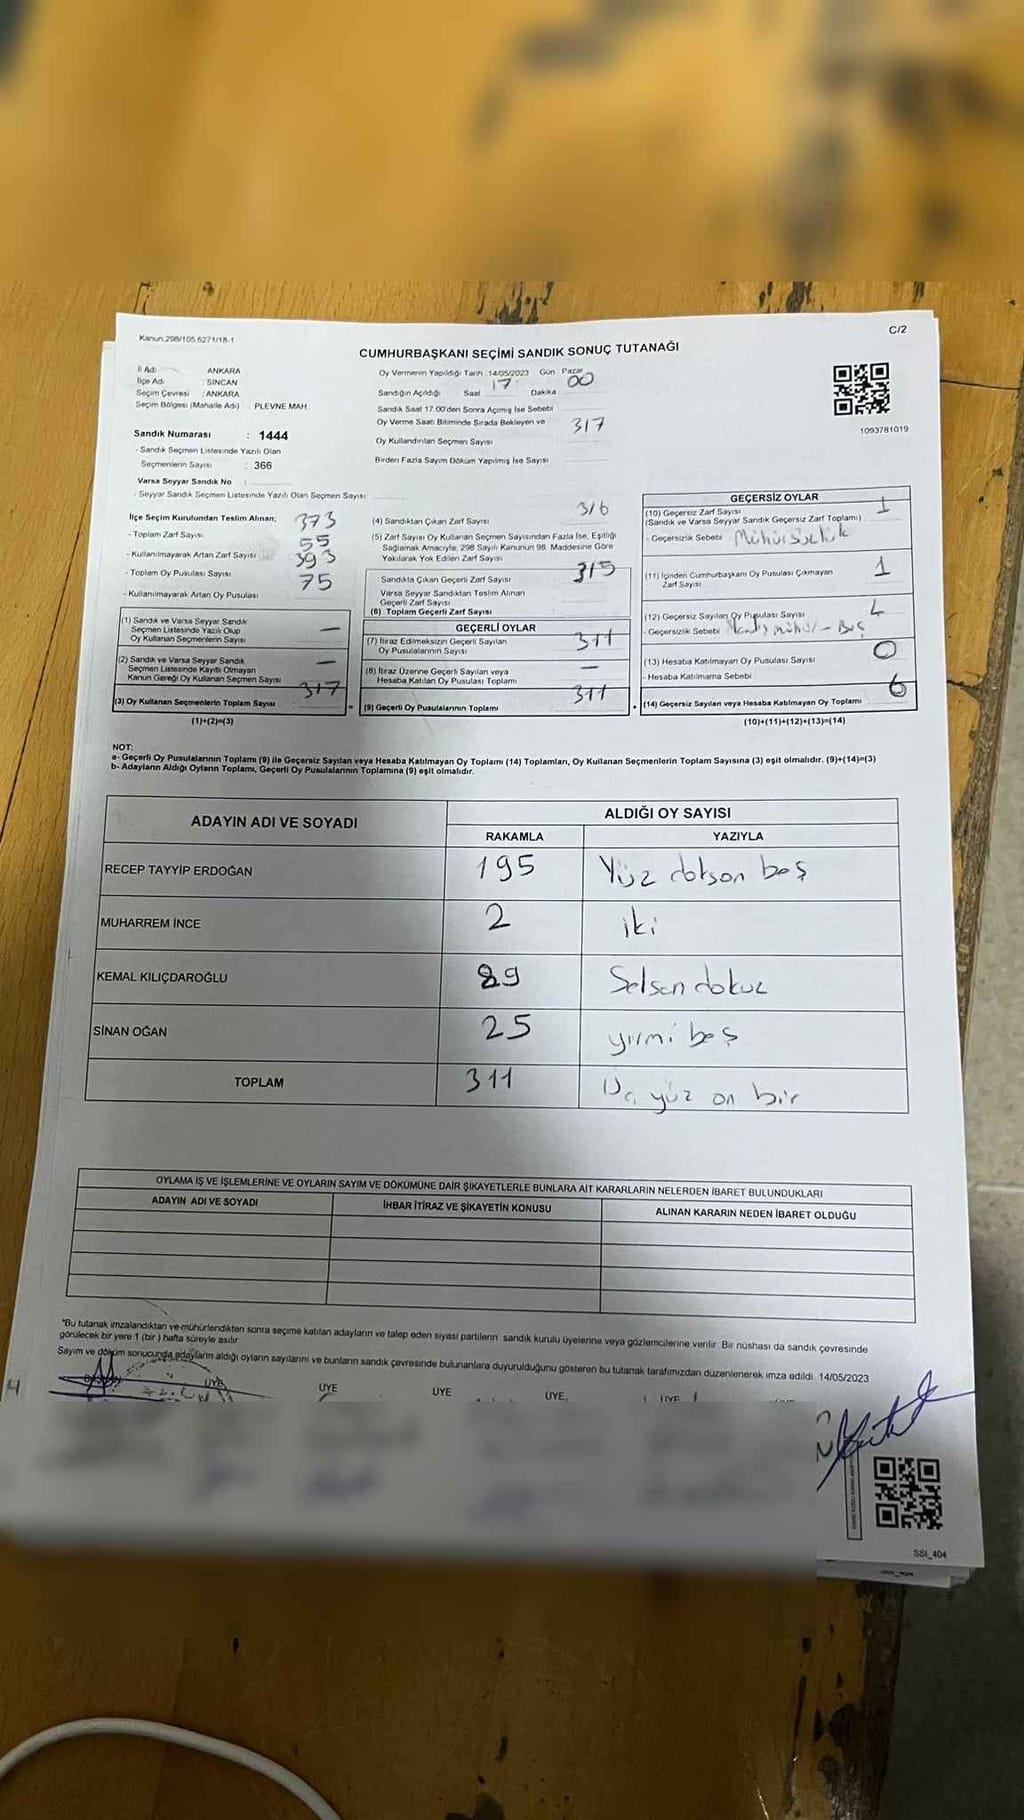 Kanun:298/105 6271/18-1
C/2
CUMHURBAŞKANI SEÇİMİ SANDIK SONUÇ TUTANAĞI
İl Adı : ANKARA
İlçe Adı : SİNCAN
Seçim Çevresi : ANKARA
Seçim Bölgesi (Mahalle Adı) PLEVNE MAH.
Sandık Numarası : 1444
- Sandık Seçmen Listesinde Yazılı Olan
Seçmenlerin Sayısı : 366
Varsa Seyyar Sandık No :
- Seyyar Sandık Seçmen Listesinde Yazılı Olan Seçmen Sayısı:
Oy Vermenin Yapıldığı Tarih :14/05/2023 Gün Pazar
Sandığın Açıldığı Saat 17 Dakika 00
Sandık Saat 17.00'den Sonra Açımış İse Sebebi
Oy Verme Saati Bitiminde Sırada Bekleyen ve 317
Oy Kullandırılan Seçmen Sayısı
Birden Fazla Sayım Döküm Yapılmış İse Sayısı
1093781019
İlçe Seçim Kurulundan Teslim Alınan; 373
- Toplam Zarf Sayısı 55
- Kullanılmayarak Artan Zarf Sayısı 393
- Toplam Oy Pusulası Sayısı 75
- Kullanılmayarak Artan Oy Pusulası
(1) Sandık ve Varsa Seyyar Sandık
Seçmen Listesinde Yazılı Olup
Oy Kullanan Seçmenlerin Sayısı —
(2) Sandık ve Varsa Seyyar Sandık
Seçmen Listesinde Kayıtlı Olmayan
Kanun Gereği Oy Kullanan Seçmen Sayısı —
(3) Oy Kullanan Seçmenlerin Toplam Sayısı 317
(1)+(2)=(3)
(4) Sandıktan Çıkan Zarf Sayısı 316
(5) Zarf Sayısı Oy Kullanan Seçmen Sayısından Fazla İse, Eşitliği
Sağlamak Amacıyla, 298 Sayılı Kanunun 98. Maddesine Göre
Yakılarak Yok Edilen Zarf Sayısı
Sandıkta Çıkan Geçerli Zarf Sayısı 315
Varsa Seyyar Sandıktan Teslim Alınan
Geçerli Zarf Sayısı
(6) Toplam Geçerli Zarf Sayısı
GEÇERLİ OYLAR
(7) İtiraz Edilmeksizin Geçerli Sayılan
Oy Pusulalarının Sayısı 311
(8) İtiraz Üzerine Geçerli Sayılan veya
Hesaba Katılan Oy Pusulası Toplamı —
(9) Geçerli Oy Pusulalarının Toplamı 311
GEÇERSİZ OYLAR
(10) Geçersiz Zarf Sayısı 1
(Sandık ve Varsa Seyyar Sandık Geçersiz Zarf Toplamı)
- Geçersizlik Sebebi Mühürsüzlük
(11) İçinden Cumhurbaşkanı Oy Pusulası Çıkmayan
Zarf Sayısı 1
(12) Geçersiz Sayılan Oy Pusulası Sayısı 4
- Geçersizlik Sebebi mühür - Boş
(13) Hesaba Katılmayan Oy Pusulası Sayısı 0
- Hesaba Katılmama Sebebi
(14) Geçersiz Sayılan veya Hesaba Katılmayan Oy Toplamı 6
(10)+(11)+(12)+(13)=(14)
NOT:
a- Geçerli Oy Pusulalarının Toplamı (9) ile Geçersiz Sayılan veya Hesaba Katılmayan Oy Toplamı (14) Toplamları, Oy Kullanan Seçmenlerin Toplam Sayısına (3) eşit olmalıdır. (9)+(14)=(3)
b- Adayların Aldığı Oyların Toplamı, Geçerli Oy Pusulalarının Toplamına (9) eşit olmalıdır.
ADAYIN ADI VE SOYADI ALDIĞI OY SAYISI
RAKAMLA YAZIYLA
RECEP TAYYİP ERDOĞAN 195 Yüz doksan beş
MUHARREM İNCE 2 iki
KEMAL KILIÇDAROĞLU 89 Seksen dokuz
SİNAN OĞAN 25 yirmi beş
TOPLAM 311 Üç yüz on bir
OYLAMA İŞ VE İŞLEMLERİNE VE OYLARIN SAYIM VE DÖKÜMÜNE DAİR ŞİKAYETLERLE BUNLARA AİT KARARLARIN NELERDEN İBARET BULUNDUKLARI
ADAYIN ADI VE SOYADI İHBAR İTİRAZ VE ŞİKAYETİN KONUSU ALINAN KARARIN NEDEN İBARET OLDUĞU
*Bu tutanak imzalandıktan ve mühürlendikten sonra seçime katılan adayların ve talep eden siyasi partilerin sandık kurulu üyelerine veya gözlemcilerine verilir. Bir nüshası da sandık çevresinde
görülecek bir yere 1 (bir) hafta süreyle asılır.
Sayım ve döküm sonucunda adayların aldığı oyların sayılarını ve bunların sandık çevresinde bulunanlara duyurulduğunu gösteren bu tutanak tarafımızdan düzenlenerek imza edildi. 14/05/2023
BAŞKAN ÜYE ÜYE ÜYE ÜYE ÜYE
SSI_404